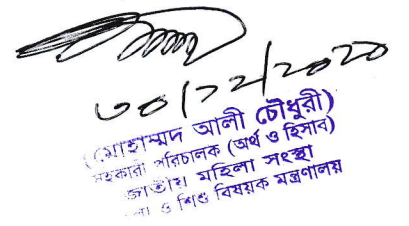 ৩০/১২/২০২০
(মোহাম্মদ আলী চৌধুরী)
সহকারী পরিচালক (অর্থ ও হিসাব)
জাতীয় মহিলা সংস্থা
ও শিশু বিষয়ক মন্ত্রণালয়